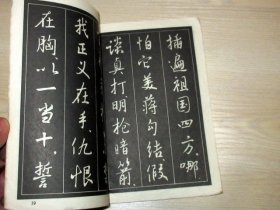 插遍祖国四方，哪
怕它美蒋勾结假
谈真打明枪暗箭，
我正义在手，仇恨
在胸，以一当十，誓
19